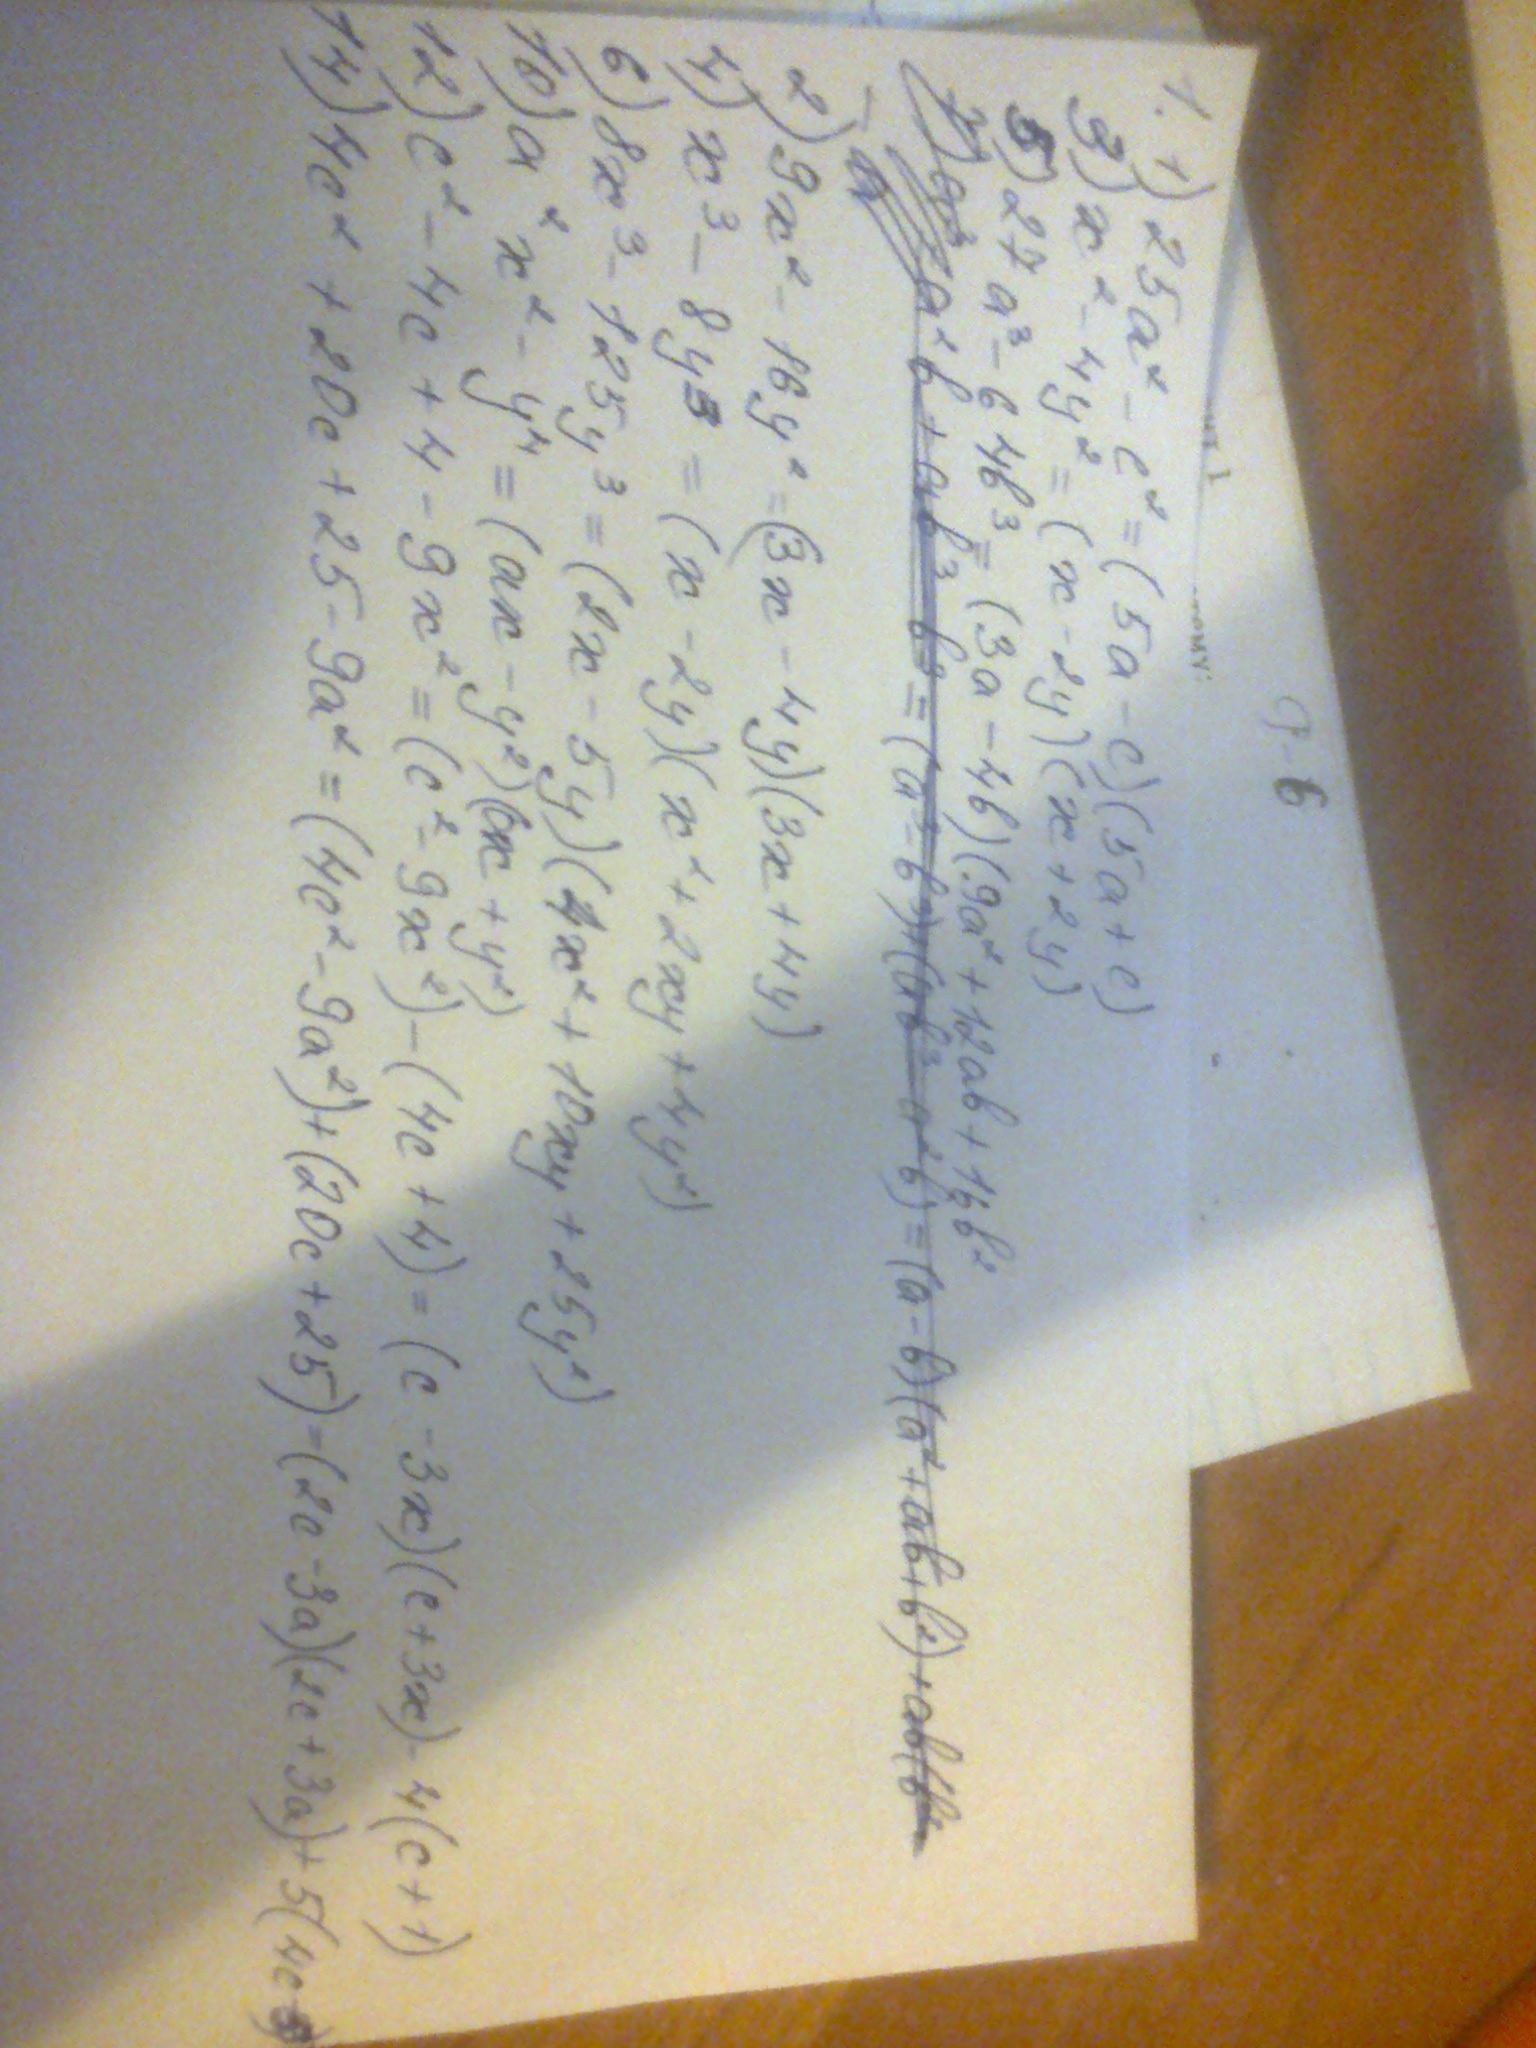 1. 1) 25a² - c² = (5a - c)(5a + c)
3) x² - 4y² = (x - 2y)(x + 2y)
5) 27a³ - 64b³ = (3a - 4b)(9a² + 12ab + 16b²
7) a³ a²b + ab³ b³ = (a³ - b³) + (ab³ a²b) = (a - b)(a² + ab + b²) + ab(b²
2) 9x² - 16y² = (3x - 4y)(3x + 4y)
4) x³ - 8y³ = (x - 2y)(x² + 2xy + 4y²)
6) 8x³ - 125y³ = (2x - 5y)(4x² + 10xy + 25y²)
10) a²x² - y⁴ = (ax - y²)(ax + y²)
12) c² - 4c + 4 - 9x² = (c² - 9x²) - (4c + 4) = (c - 3x)(c + 3x) - 4(c + 1)
14) 4c² + 20c + 25 - 9a² = (4c² - 9a²) + (20c + 25) = (2c - 3a)(2c + 3a) + 5(4c